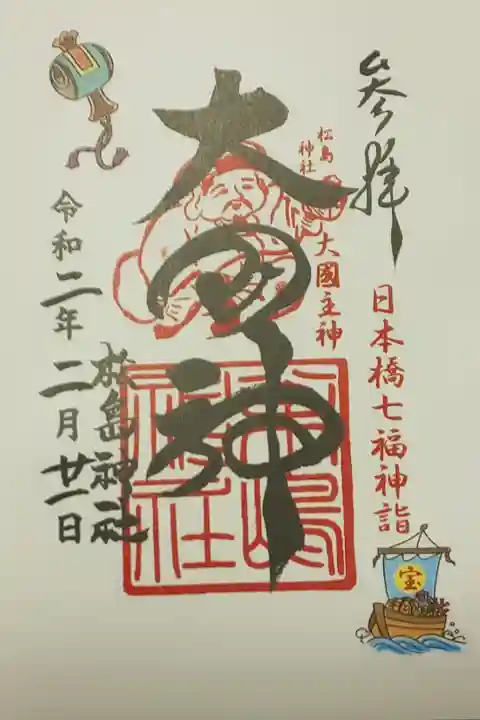 参拝
日本橋七福神詣
宝
松島
神社
大國主神
大国神
松島神社
令和二年二月廿一日
松嶋
神社